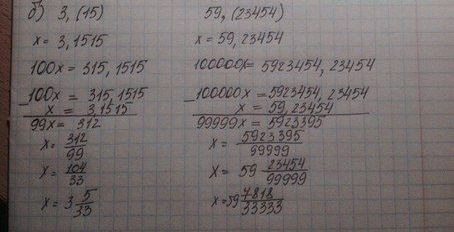 б) 3,(15)
x = 3,1515
100x = 315,1515
100x = 315,1515
- x = 3,1515
99x = 312
x = 312/99
x = 104/33
x = 3 5/33
59,(23454)
x = 59,23454
100000x = 5923454,23454
- 100000x = 5923454,23454
x = 59,23454
99999x = 5923395
x = 5923395/99999
x = 59 23454/99999
x = 59 7818/33333